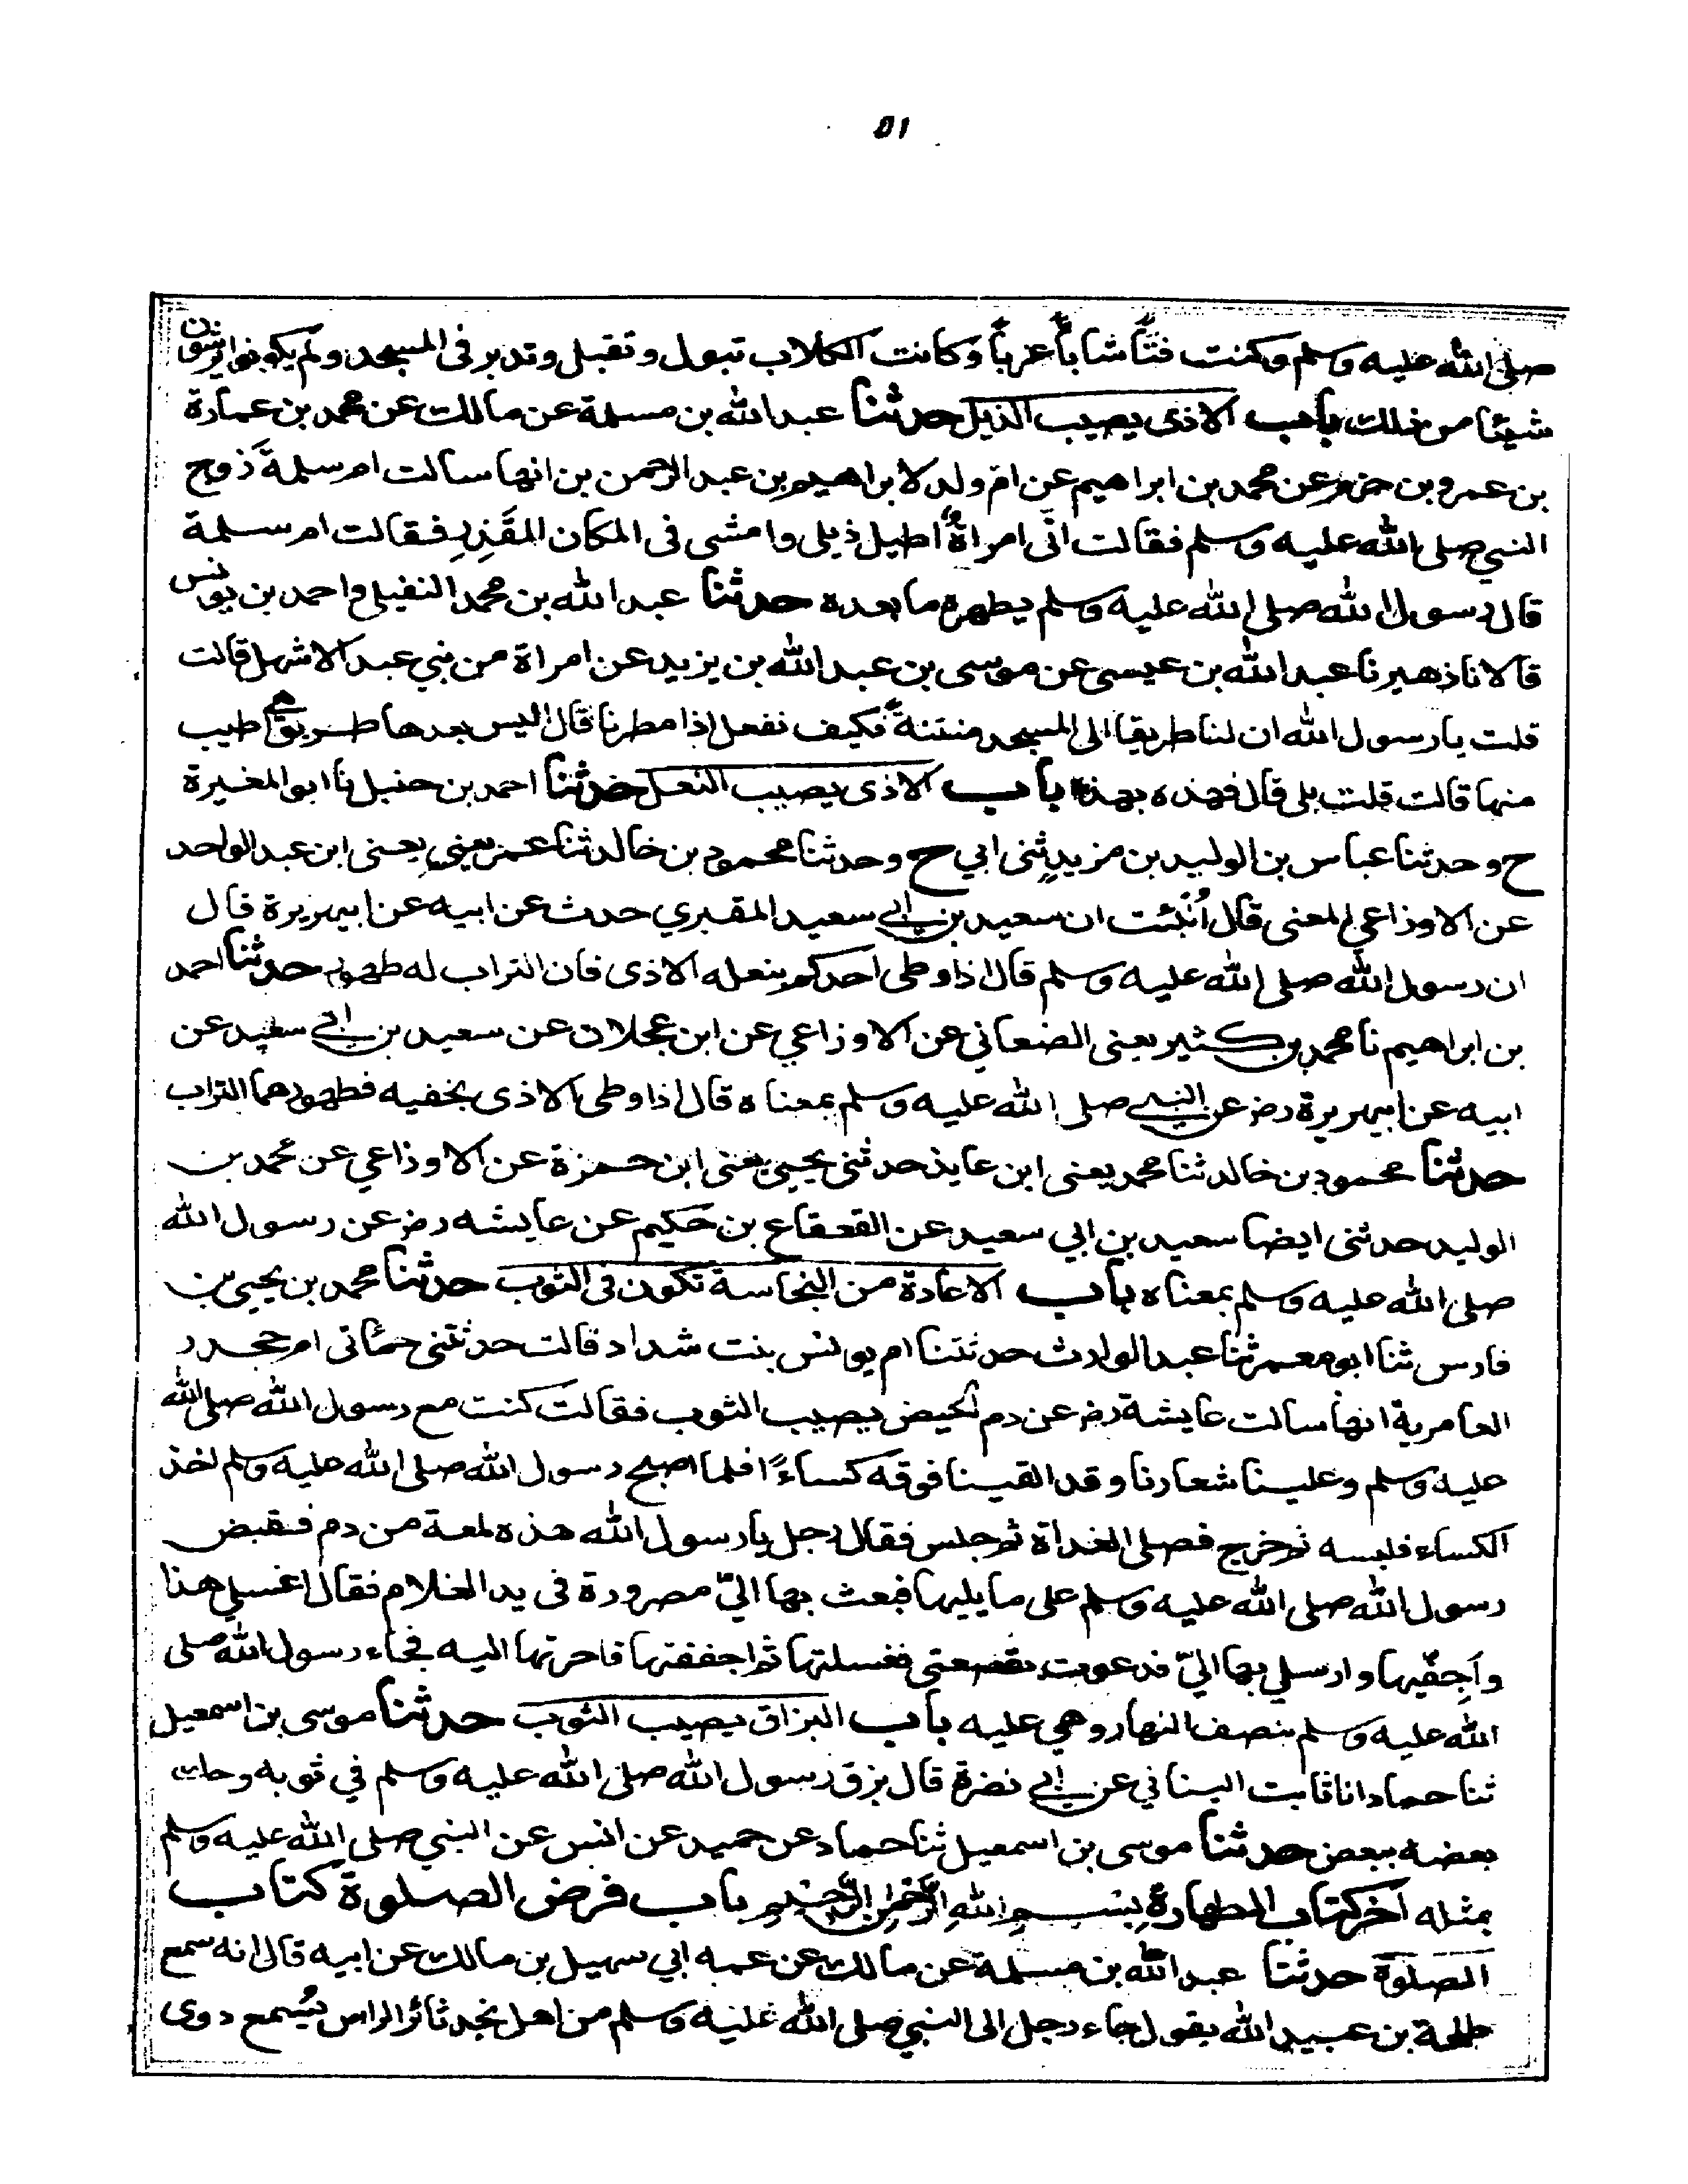 ٥١
صلى الله عليه وسلم وكنت فتًّا شابًّا عزبًا وكانت الكلاب تبول وتقبل وتدبر فى المسجد ولم يكونوا يرشون
شيئا من ذلك باب الاذى يصيب الذيل حدثنا عبد الله بن مسلمة عن مالك عن محمد بن عمارة
بن عمرو بن حزم عن محمد بن ابراهيم عن ام ولد لابراهيم بن عبد الرحمن بن انها سالت ام سلمة زوج
النبي صلى الله عليه وسلم فقالت انّى امراةٌ اطيل ذيلى وامشى فى المكان القَذِرِ فقالت ام سلمة
قال رسول الله صلى الله عليه وسلم يطهره ما بعده حدثنا عبد الله بن محمد النفيلى واحمد بن يونس
قالا نا زهير نا عبد الله بن عيسى عن موسى بن عبد الله بن يزيد عن امراة من بني عبد الاشهل قالت
قلت يا رسول الله ان لنا طريقا الى المسجد منتنةً فكيف نفعل اذا مطرنا قال اليس بعدها طريق هى طيب
منها قالت قلت بلى قال فهذه بهذه باب الاذى يصيب النعل حدثنا احمد بن حنبل نا ابو المغيرة
ح وحدثنا عباس بن الوليد بن مزيد ثنى ابي ح وحدثنا محمود بن خالد ثنا عمر يعنى يعنى ابن عبد الواحد
عن الاوزاعي المعنى قال أُنْبِئت ان سعيد بن ابي سعيد المقبري حدث عن ابيه عن ابيهريرة قال
ان رسول الله صلى الله عليه وسلم قال اذا وطى احدكم بنعله الاذى فان التراب له طهور حدثنا احمد
بن ابراهيم نا محمد بن كثير يعنى الصنعاني عن الاوزاعي عن ابن عجلان عن سعيد بن ابي سعيد عن
ابيه عن ابيهريرة رض عن النبي صلى الله عليه وسلم بمعناه قال اذا وطى الاذى بخفيه فطهورهما التراب
حدثنا محمود بن خالد ثنا محمد يعنى ابن عايذ حدثنى يحيى يعنى ابن حمزة عن الاوزاعي عن محمد بن
الوليد حدثنى ايضا سعيد بن ابي سعيد عن القعقاع بن حكيم عن عايشه رض عن رسول الله
صلى الله عليه وسلم بمعناه باب الاعادة من النجاسة تكون فى الثوب حدثنا محمد بن يحيى بن
فارس ثنا ابو معمر ثنا عبد الوارث حدثتنا ام يونس بنت شداد قالت حدثتنى حماتى ام جحدر
العامرية انها سالت عايشة رض عن دم الحيض يصيب الثوب فقالت كنت مع رسول الله صلى الله
عليه وسلم وعلينا شعارنا وقد القينا فوقه كساءً ا فلما اصبح رسول الله صلى الله عليه وسلم اخذ
الكساء فلبسه ثم خرج فصلى الغداة ثم جلس فقال رجل يا رسول الله هذه لمعة من دم فقبض
رسول الله صلى الله عليه وسلم على ما يليها فبعث بها اليّ مصرورة فى يد الغلام فقال اغسلى هذا
واَجِفّيها وارسلي بها اليّ فدعوت بقصعتى فغسلتها ثم اجففتها فاحرتها اليه فجاء رسول الله صلى
الله عليه وسلم بنصف النهار وهي عليه باب البزاق يصيب الثوب حدثنا موسى بن اسمعيل
ثنا حماد انا ثابت البناني عن ابي نضرة قال بزق رسول الله صلى الله عليه وسلم في ثوبه وحك
بعضه ببعض حدثنا موسى بن اسمعيل ثنا حماد عن حميد عن انس عن النبي صلى الله عليه وسلم
بمثله اخر كتاب الطهارة بِسْمِ اللهِ الرَّحْمٰنِ الرَّحِيْمِ باب فرض الصلوة كتاب
الصلوة حدثنا عبد الله بن مسلمة عن مالك عن عمه ابي سهيل بن مالك عن ابيه قال انه سمع
طلحة بن عبيد الله يقول جاء رجل الى النبي صلى الله عليه وسلم من اهل نجد ثائر الراس يُسمع دوى